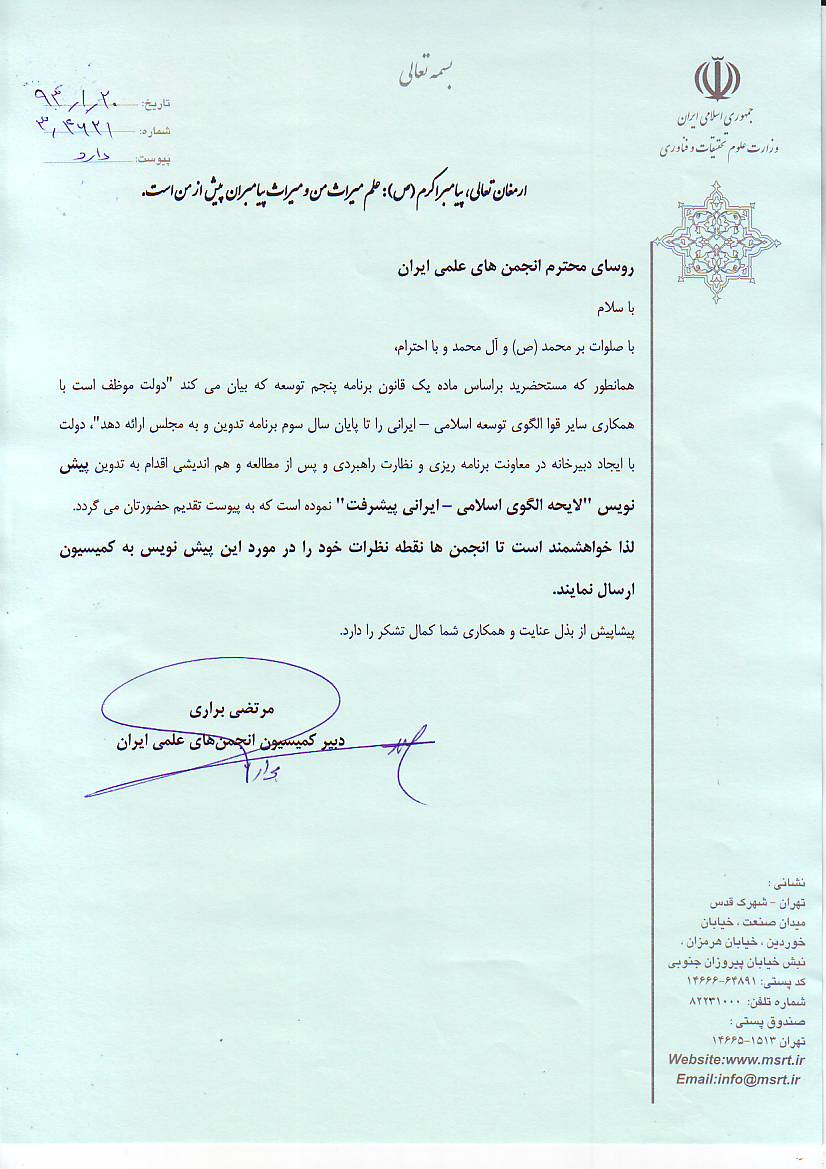 بسمه تعالی
جمهوری اسلامی ایران
وزارت علوم تحقیقات و فناوری
تاریخ: ۹۴/۱/۲۰
شماره: ۳/۴۶۲۱
پیوست: دارد
ارمغان تعالی، پیامبر اکرم (ص): علم میراث من و میراث پیامبران پیش از من است.
روسای محترم انجمن های علمی ایران
با سلام
با صلوات بر محمد (ص) و آل محمد و با احترام،
همانطور که مستحضرید براساس ماده یک قانون برنامه پنجم توسعه که بیان می کند "دولت موظف است با
همکاری سایر قوا الگوی توسعه اسلامی – ایرانی را تا پایان سال سوم برنامه تدوین و به مجلس ارائه دهد"، دولت
با ایجاد دبیرخانه در معاونت برنامه ریزی و نظارت راهبردی و پس از مطالعه و هم اندیشی اقدام به تدوین پیش
نویس "لایحه الگوی اسلامی – ایرانی پیشرفت" نموده است که به پیوست تقدیم حضورتان می گردد.
لذا خواهشمند است تا انجمن ها نقطه نظرات خود را در مورد این پیش نویس به کمیسیون
ارسال نمایند.
پیشاپیش از بذل عنایت و همکاری شما کمال تشکر را دارد.
مرتضی براری
دبیر کمیسیون انجمن‌های علمی ایران
نشانی :
تهران - شهرک قدس
میدان صنعت ، خیابان
خوردین ، خیابان هرمزان ،
نبش خیابان پیروزان جنوبی
کد پستی: ۶۴۸۹۱-۱۴۶۶۶
شماره تلفن: ۸۲۲۳۱۰۰۰
صندوق پستی :
تهران ۱۵۱۳-۱۴۶۶۵
Website:www.msrt.ir
Email:info@msrt.ir